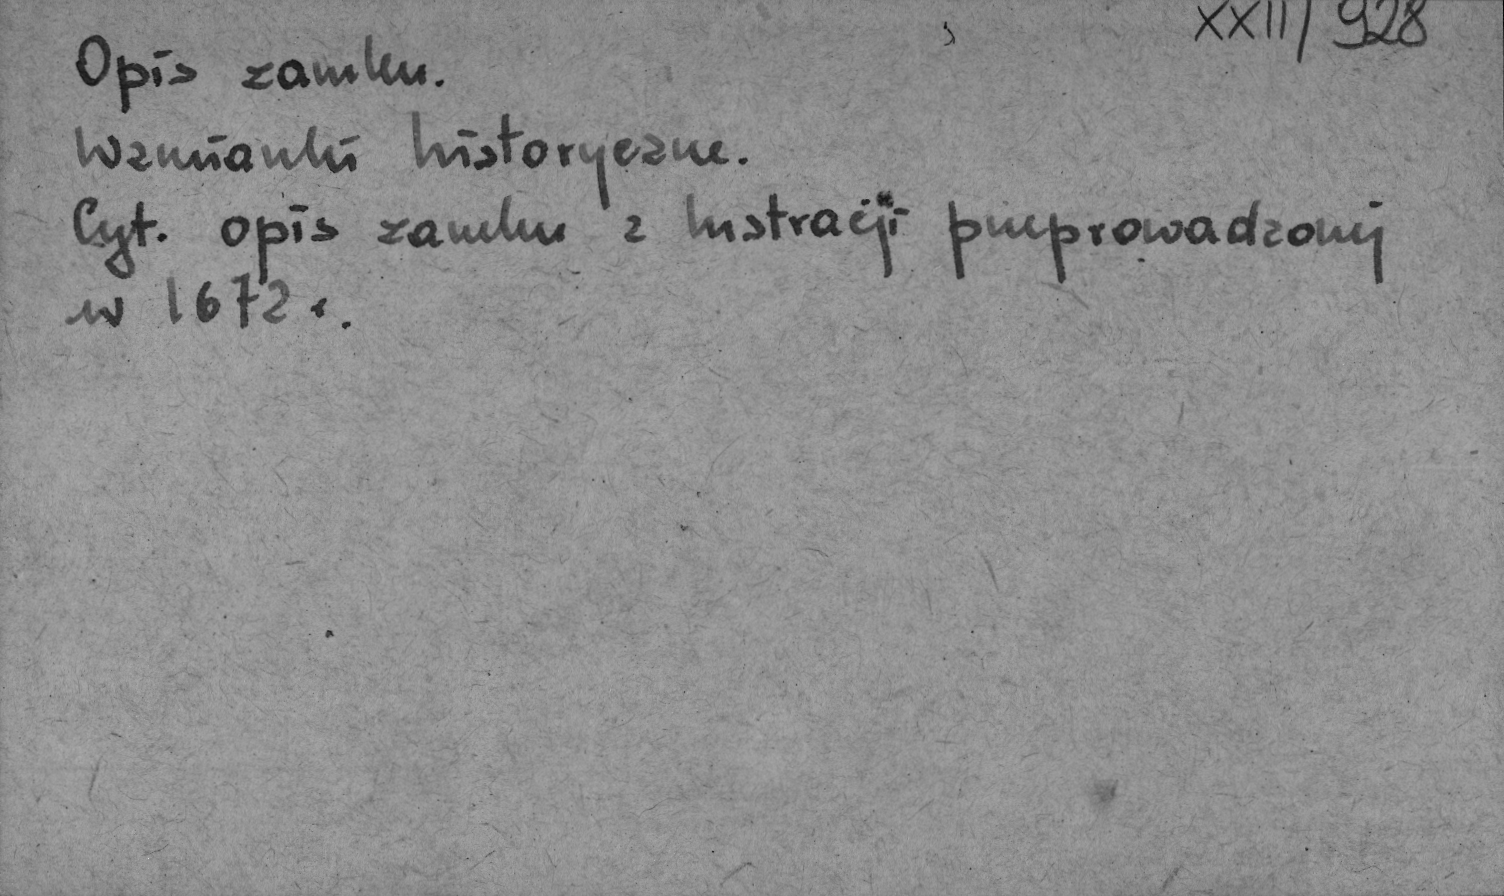 XXII/928
Opis zamku.
Wzmianki historyczne.
Cyt. opis zamku z lustracji przeprowadzonej
w 1672 r.